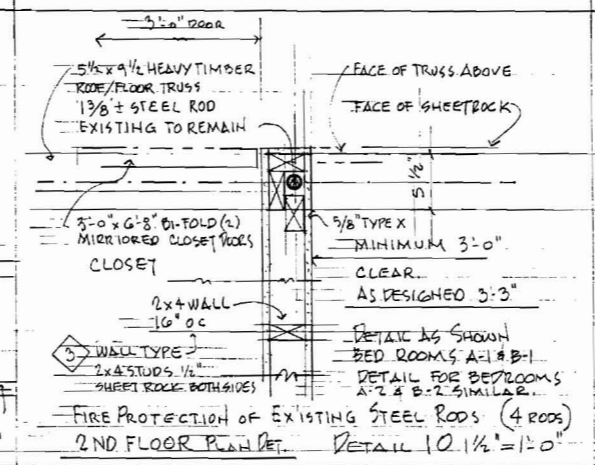 3'-0" DOOR
5 1/2 x 9 1/2 HEAVY TIMBER
ROOF/FLOOR TRUSS
1 3/8" ± STEEL ROD
EXISTING TO REMAIN
FACE OF TRUSS ABOVE
FACE OF SHEETROCK
5 1/2"
3'-0" x 6'-8" BI-FOLD (2)
MIRRIORED CLOSET DOORS
CLOSET
5/8" TYPE X
MINIMUM 3'-0"
CLEAR.
AS DESIGNED 3'-3"
2x4 WALL
16" OC
3 WALL TYPE
2x4 STUDS 1/2"
SHEET ROCK BOTH SIDES
DETAIL AS SHOWN
BED ROOMS A-1 & B-1
DETAIL FOR BEDROOMS
A-2 & B-2 SIMILAR.
FIRE PROTECTION OF EXISTING STEEL RODS (4 RODS)
2ND FLOOR PLAN DET. DETAIL 10 1 1/2" = 1'-0"